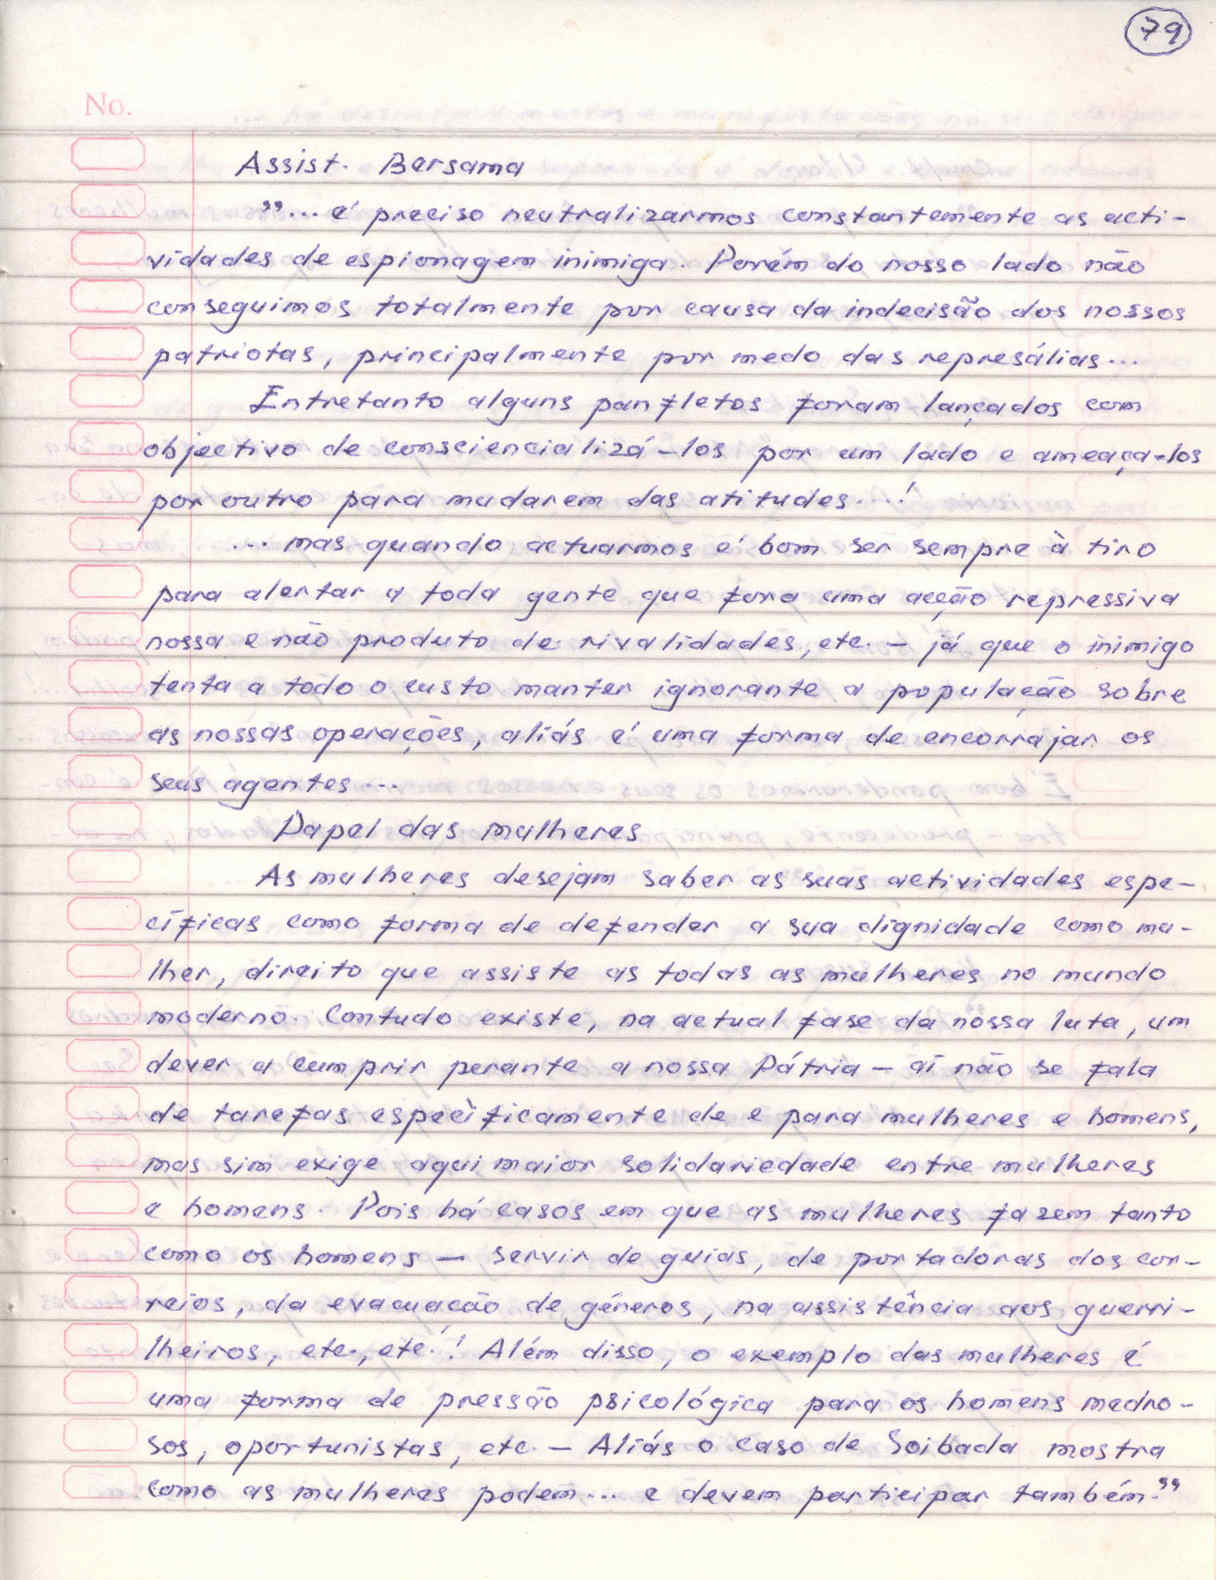 79
No.
Assist. Bersama
"... é preciso neutralizarmos constantemente as acti-
vidades de espionagem inimiga. Porém do nosso lado não
conseguimos totalmente por causa da indecisão dos nossos
patriotas, principalmente por medo das represálias...
Entretanto alguns panfletos foram lançados com
objectivo de consciencializá-los por um lado e ameaça-los
por outro para mudarem das atitudes...!
... mas quando actuarmos é bom ser sempre à tiro
para alertar a toda gente que fora uma acção repressiva
nossa e não produto de rivalidades, etc. - já que o inimigo
tenta a todo o custo manter ignorante a população sobre
as nossas operações, aliás é uma forma de encorrajar os
seus agentes...
Papel das mulheres
As mulheres desejam saber as suas actividades espe-
cíficas como forma de defender a sua dignidade como mu-
lher, direito que assiste as todas as mulheres no mundo
moderno. Contudo existe, na actual fase da nossa luta, um
dever a cumprir perante a nossa Pátria - aí não se fala
de tarefas especìficamente de e para mulheres e homens,
mas sim exige aqui maior solidariedade entre mulheres
e homens. Pois há casos em que as mulheres fazem tanto
como os homens - servir de guias, de portadoras dos cor-
reios, da evacuação de géneros, na assistência aos guerri-
lheiros, etc., etc.! Além disso, o exemplo das mulheres é
uma forma de pressão psicológica para os homens medro-
sos, oportunistas, etc. - Aliás o caso de Soibada mostra
como as mulheres podem... e devem participar também."